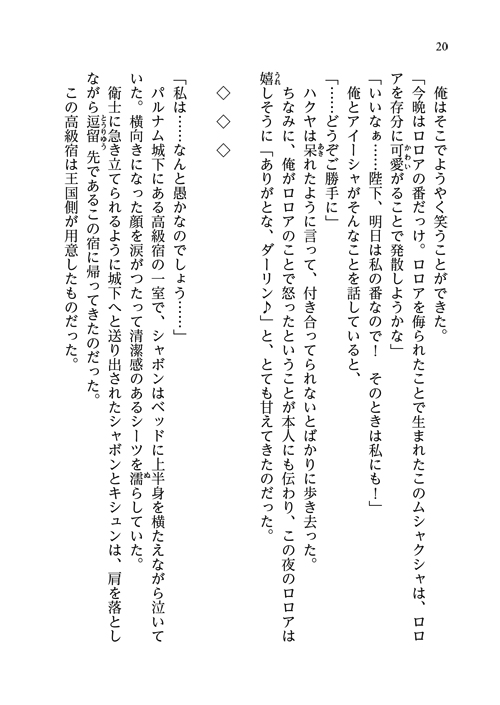 20
俺はそこでようやく笑うことができた。
「今晩はロロアの番だっけ。ロロアを侮られたことで生まれたこのムシャクシャは、ロロ
アを存分に可愛がることで発散しようかな」
「いいなぁ……陛下、明日は私の番なので！　そのときは私にも！」
俺とアイーシャがそんなことを話していると、
「……どうぞご勝手に」
ハクヤは呆れたように言って、付き合ってられないとばかりに歩き去った。
ちなみに、俺がロロアのことで怒ったということが本人にも伝わり、この夜のロロアは
嬉しそうに「ありがとな、ダーリン♪」と、とても甘えてきたのだった。
◇　◇　◇
「私は……なんと愚かなのでしょう……」
パルナム城下にある高級宿の一室で、シャボンはベッドに上半身を横たえながら泣いて
いた。横向きになった顔を涙がつたって清潔感のあるシーツを濡らしていた。
衛士に急き立てられるように城下へと送り出されたシャボンとキシュンは、肩を落とし
ながら逗留先であるこの宿に帰ってきたのだった。
この高級宿は王国側が用意したものだった。